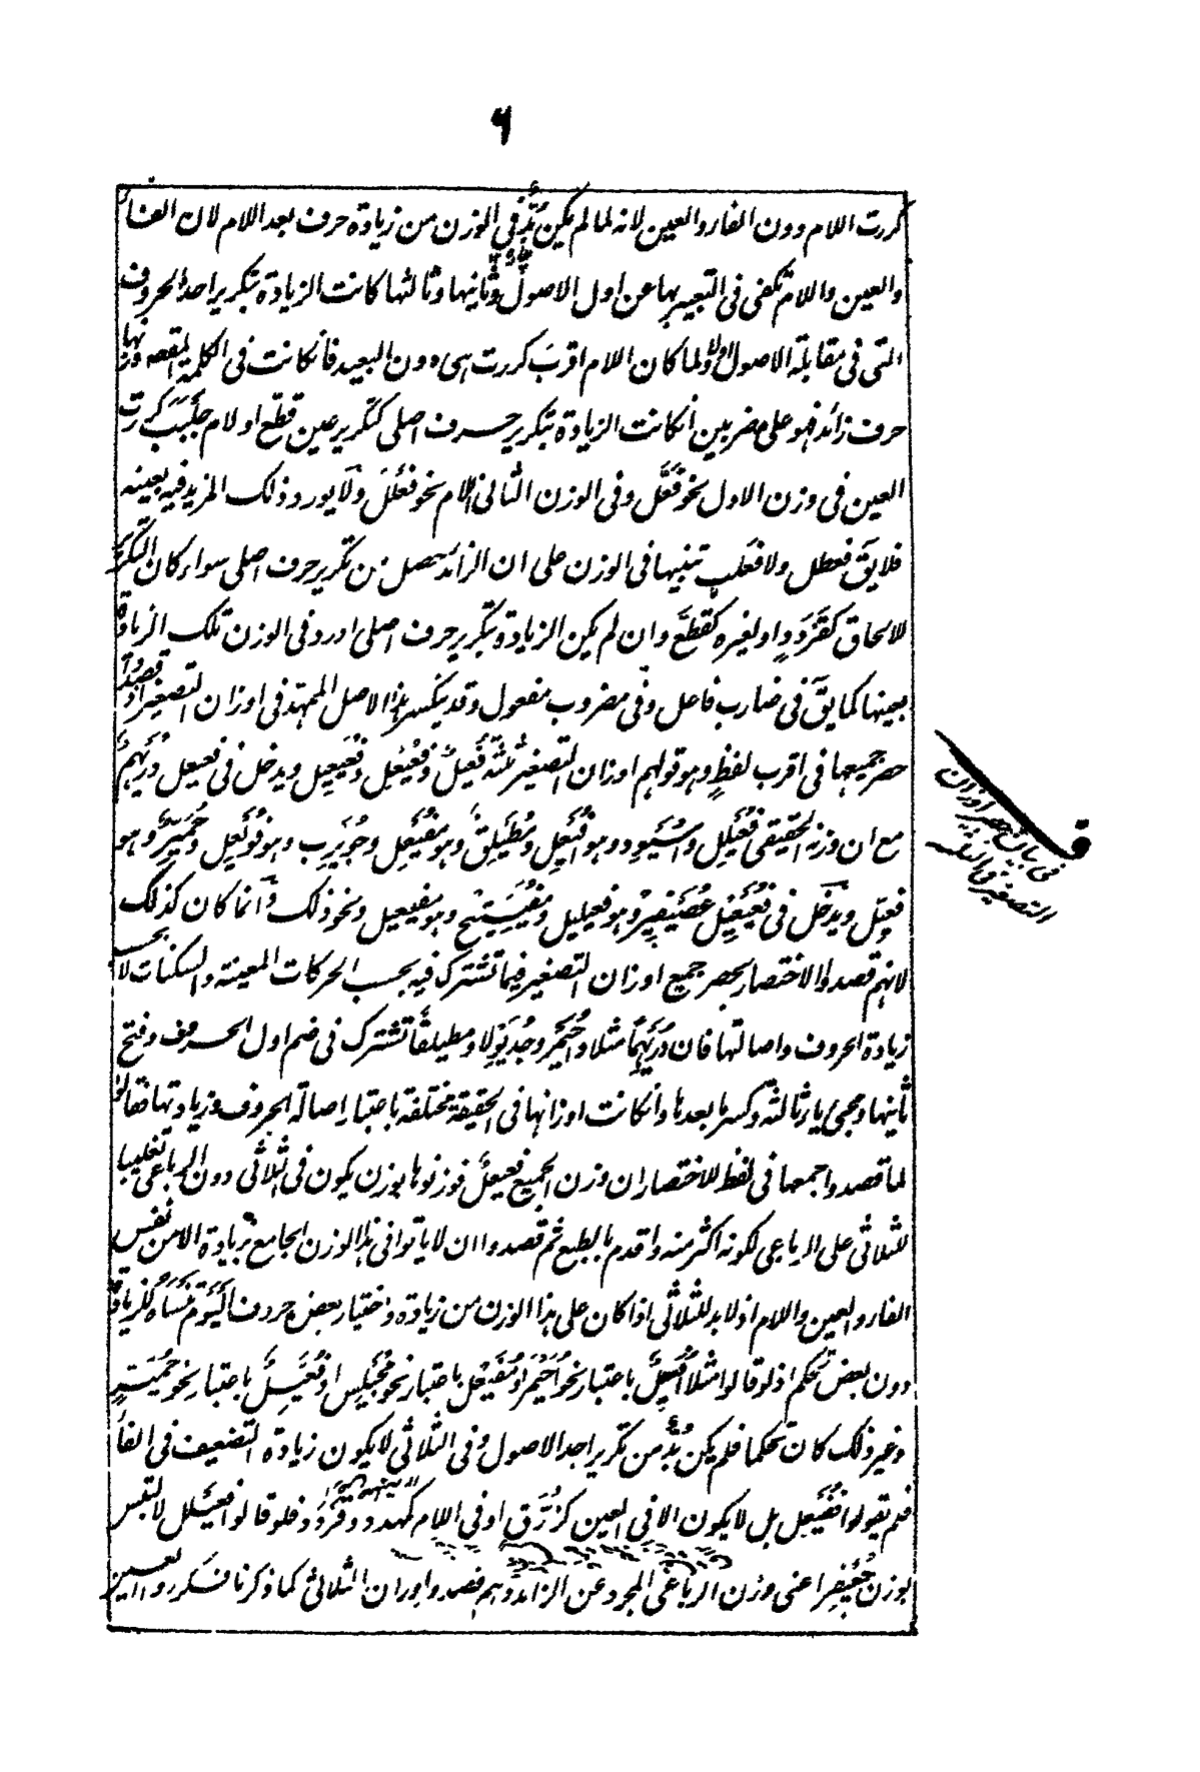 ٦
كررت اللام دون الفاء والعين لانه لما لم يكن بُدٌّ فى الوزن من زيادة حرف بعد اللام لان الفاء
والعين واللام تكفى فى التعبير بها عن اول الاصول وثانيها وثالثها كانت الزيادة بتكرير احد الحروف
التى فى مقابلة الاصول اولا ولما كان اللام اقربَ كررت هى دون البعيد فانكانت فى الكلمة المقصود وزنها
حرف زائد فهو على ضربين انكانت الزيادة بتكرير حرف اصلى كتكرير عين قطّع او لام جَلْبَبَ كررت
العين فى وزن الاول نحو فَعَّل وفى الوزن الثانى اللام نحو فَعْلَلَ ولا يورد ذلك المزيد فيه بعينه
فلا يقَ فعطل ولا فعلب تنبيها فى الوزن على ان الزائد حصل من تكرير حرف اصلى سواء كان التكرير
للالحاق كقَرْدَدٍ او لغيره كقطّع وان لم يكن الزيادة بتكرير حرف اصلى اورد فى الوزن تلك الزيادة
بعينها كما يقَ فى ضارب فاعل وفى مضروب مفعول وقد ينكسر هذا الاصل الممهد فى اوزان التصغير اذ قصدوا
حصر جميعها فى اقرب لفظٍ وهو قولهم اوزان التصغير ثلثة فُعَيل وفُعَيعِل وفُعَيعِيل ويدخل فى فعيعل دُرَيهِم
مع ان وزنه الحقيقى فُعَيلِل واُسَيوِد وهو اُفَيعِل ومُطَيلِق وهو مُفَيعِل وجُوَيرِب وهو فُوَيعِل وحُمَيِّر وهو
فعيّل ويدخل فى فُعَيعِيل عُصَيفِير وهو فعيليل ومُفَيتِيح وهو مفيعيل ونحو ذلك وانما كان كذلك
لانهم قصدوا الاختصار بحصر جميع اوزان التصغير فيما تشترك فيه بحسب الحركات المعينة والسكنات لا بحسب
زيادة الحروف واصالتها فان دُرَيهِمًا مثلا واُحَيمِر وجُدَيوِلا ومطيلقا تشترك فى ضم اول الحروف وفتح
ثانيها ومجئ ياء ثالثة وكسر ما بعدها وانكانت اوزانها فى الحقيقة مختلفة باعتبار اصالة الحروف وزيادتها فقالوا
لما قصدوا جمعها فى لفظ للاختصار ان وزن الجميع فعيعل فوزنوها بوزن يكون فى الثلاثى دون الرباعى تغليبا
للثلاثى على الرباعى لكونه اكثر منه واقدم بالطبع ثم قصدوا ان لا ياتوا فى هذا الوزن الجامع بزيادة الا من نفس
الفاء والعين واللام اذ لا بد للثلاثى اذا كان على هذا الوزن من زيادة واختيار بعض حروف اَلْيَوْمَ تَنْسَاهُ للزيادة
دون بعض تحكم اذ لو قالوا مثلا اُفَيعِل باعتبار نحو اُحَيمِر او مُفَيعِل باعتبار نحو مُجَيلِس او فُعَيِّل باعتبار نحو حُمَيِّر
وغير ذلك كان تحكما فلم يكن بُدٌّ من تكرير احد الاصول وفى الثلاثى لا يكون زيادة التضعيف فى الفاء
فلم يقولوا فُفَيعِل بل لا يكون الا فى العين كزُرَّق او فى اللام كمهدد وقردد فلو قالوا فعيلل لالتبس
بوزن جُعَيفِر اعنى وزن الرباعى المجرد عن الزائد وهم قصدوا اوزان الثلاثى كما ذكرنا فكرروا العين
فى بيان حصر اوزان
التصغير فى الثلاثة